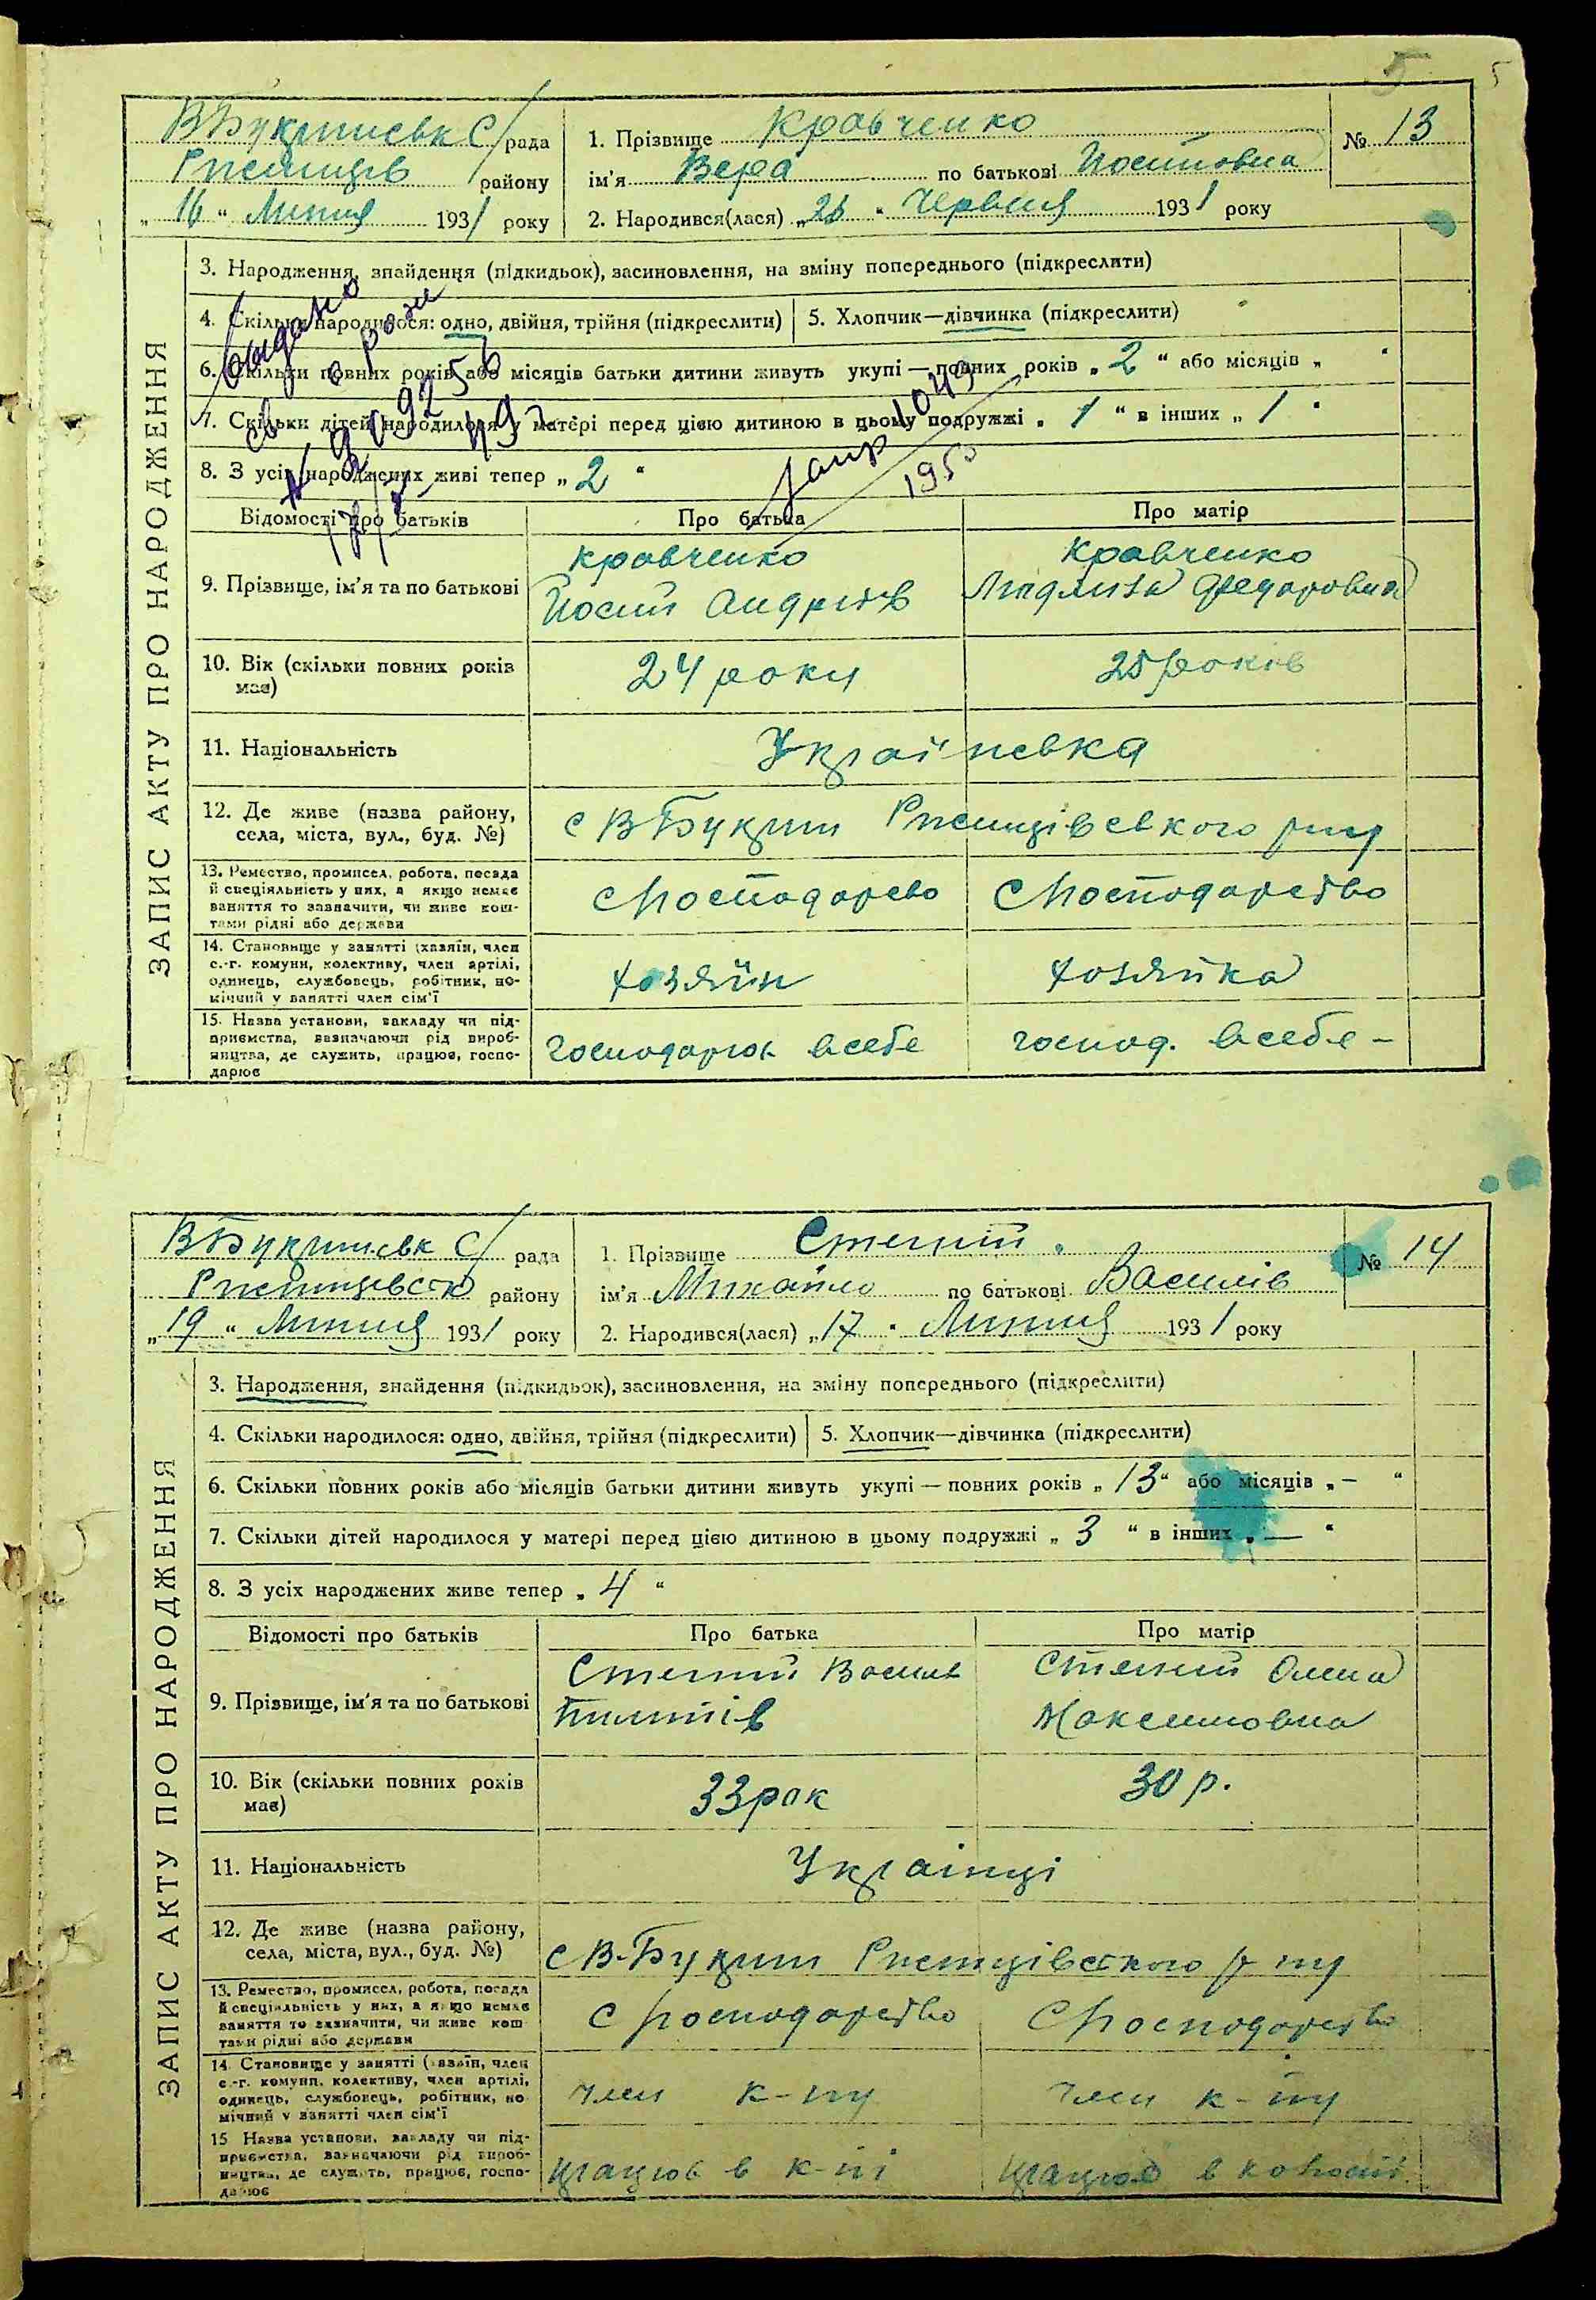 5 5
В Букринськ С/рада
Ржищів району
„ 16 “ Липня 1931 року
1. Прізвище Кравченко
ім'я Вера по батькові Йосиповна
2. Народився(лася) „ “ Червня 1931 року
№ 13
ЗАПИС АКТУ ПРО НАРОДЖЕННЯ
3. Народження, знайдення (підкидьок), засиновлення, на зміну попереднього (підкреслити)
4. Скільки народилося: одно, двійня, трійня (підкреслити) 5. Хлопчик—дівчинка (підкреслити)
6. Скільки повних років або місяців батьки дитини живуть укупі — повних років „ 2 “ або місяців „ “
7. Скільки дітей народилося у матері перед цією дитиною в цьому подружжі „ 1 “ в інших „ 1 “
8. З усіх народжених живі тепер „ 2 “
Відомості про батьків Про батька Про матір
9. Прізвище, ім'я та по батькові
Кравченко
Йосип Андріїв
Кравченко
Федоровна
10. Вік (скільки повних років
має)
24 роки
25 років
11. Національність
Українська
12. Де живе (назва району,
села, міста, вул., буд. №)
с В Букрин Ржищівського р-ну
13. Ремество, промисел, робота, посада
й спеціяльність у них, а якщо немає
заняття то зазначити, чи живе кош-
тами рідні або держави
С Господарсво
С Господарство
14. Становище у занятті (хазяїн, член
с.-г. комуни, колективу, член артілі,
одинець, службовець, робітник, по-
мічний у занятті член сім'ї
хозяйн
хозяйка
15. Назва установи, закладу чи під-
приємства, зазначаючи рід вироб-
ництва, де служить, працює, госпо-
дарює
господарює всебе
господ. всебе -
В Букринськ С/ рада
Ржищевско району
„ 19 “ Липня 1931 року
1. Прізвище
ім'я Михайло по батькові Василів
2. Народився(лася) „ 17 “ Липня 1931 року
№ 14
ЗАПИС АКТУ ПРО НАРОДЖЕННЯ
3. Народження, знайдення (підкидьок), засиновлення, на зміну попереднього (підкреслити)
4. Скільки народилося: одно, двійня, трійня (підкреслити) 5. Хлопчик—дівчинка (підкреслити)
6. Скільки повних років або місяців батьки дитини живуть укупі — повних років „ 13 “ або місяців „ – “
7. Скільки дітей народилося у матері перед цією дитиною в цьому подружжі „ 3 “ в інших „ — “
8. З усіх народжених живе тепер „ 4 “
Відомості про батьків Про батька Про матір
9. Прізвище, ім'я та по батькові
Василь
Пилипів
Олена
Максимовна
10. Вік (скільки повних років
має)
33 рок
30 р.
11. Національність
Українці
12. Де живе (назва району,
села, міста, вул., буд. №)
с В-Букрин Ржищівського р-ну
13. Ремество, промисел, робота, посада
й спеціяльність у них, а якщо немає
заняття то зазначити, чи живе кош
тами рідні або держави
С Господарство
С Господарство
14. Становище у занятті (хазяїн, член
с.-г. комуни, колективу, член артілі,
одинець, службовець, робітник, по
мічний у занятті член сім'ї
член к-пу
член к-пу
15 Назва установи, закладу чи під-
приємства, зазначаючи рід вироб-
ництва, де служить, працює, госпо-
дарює
працює в к-пі
працює в